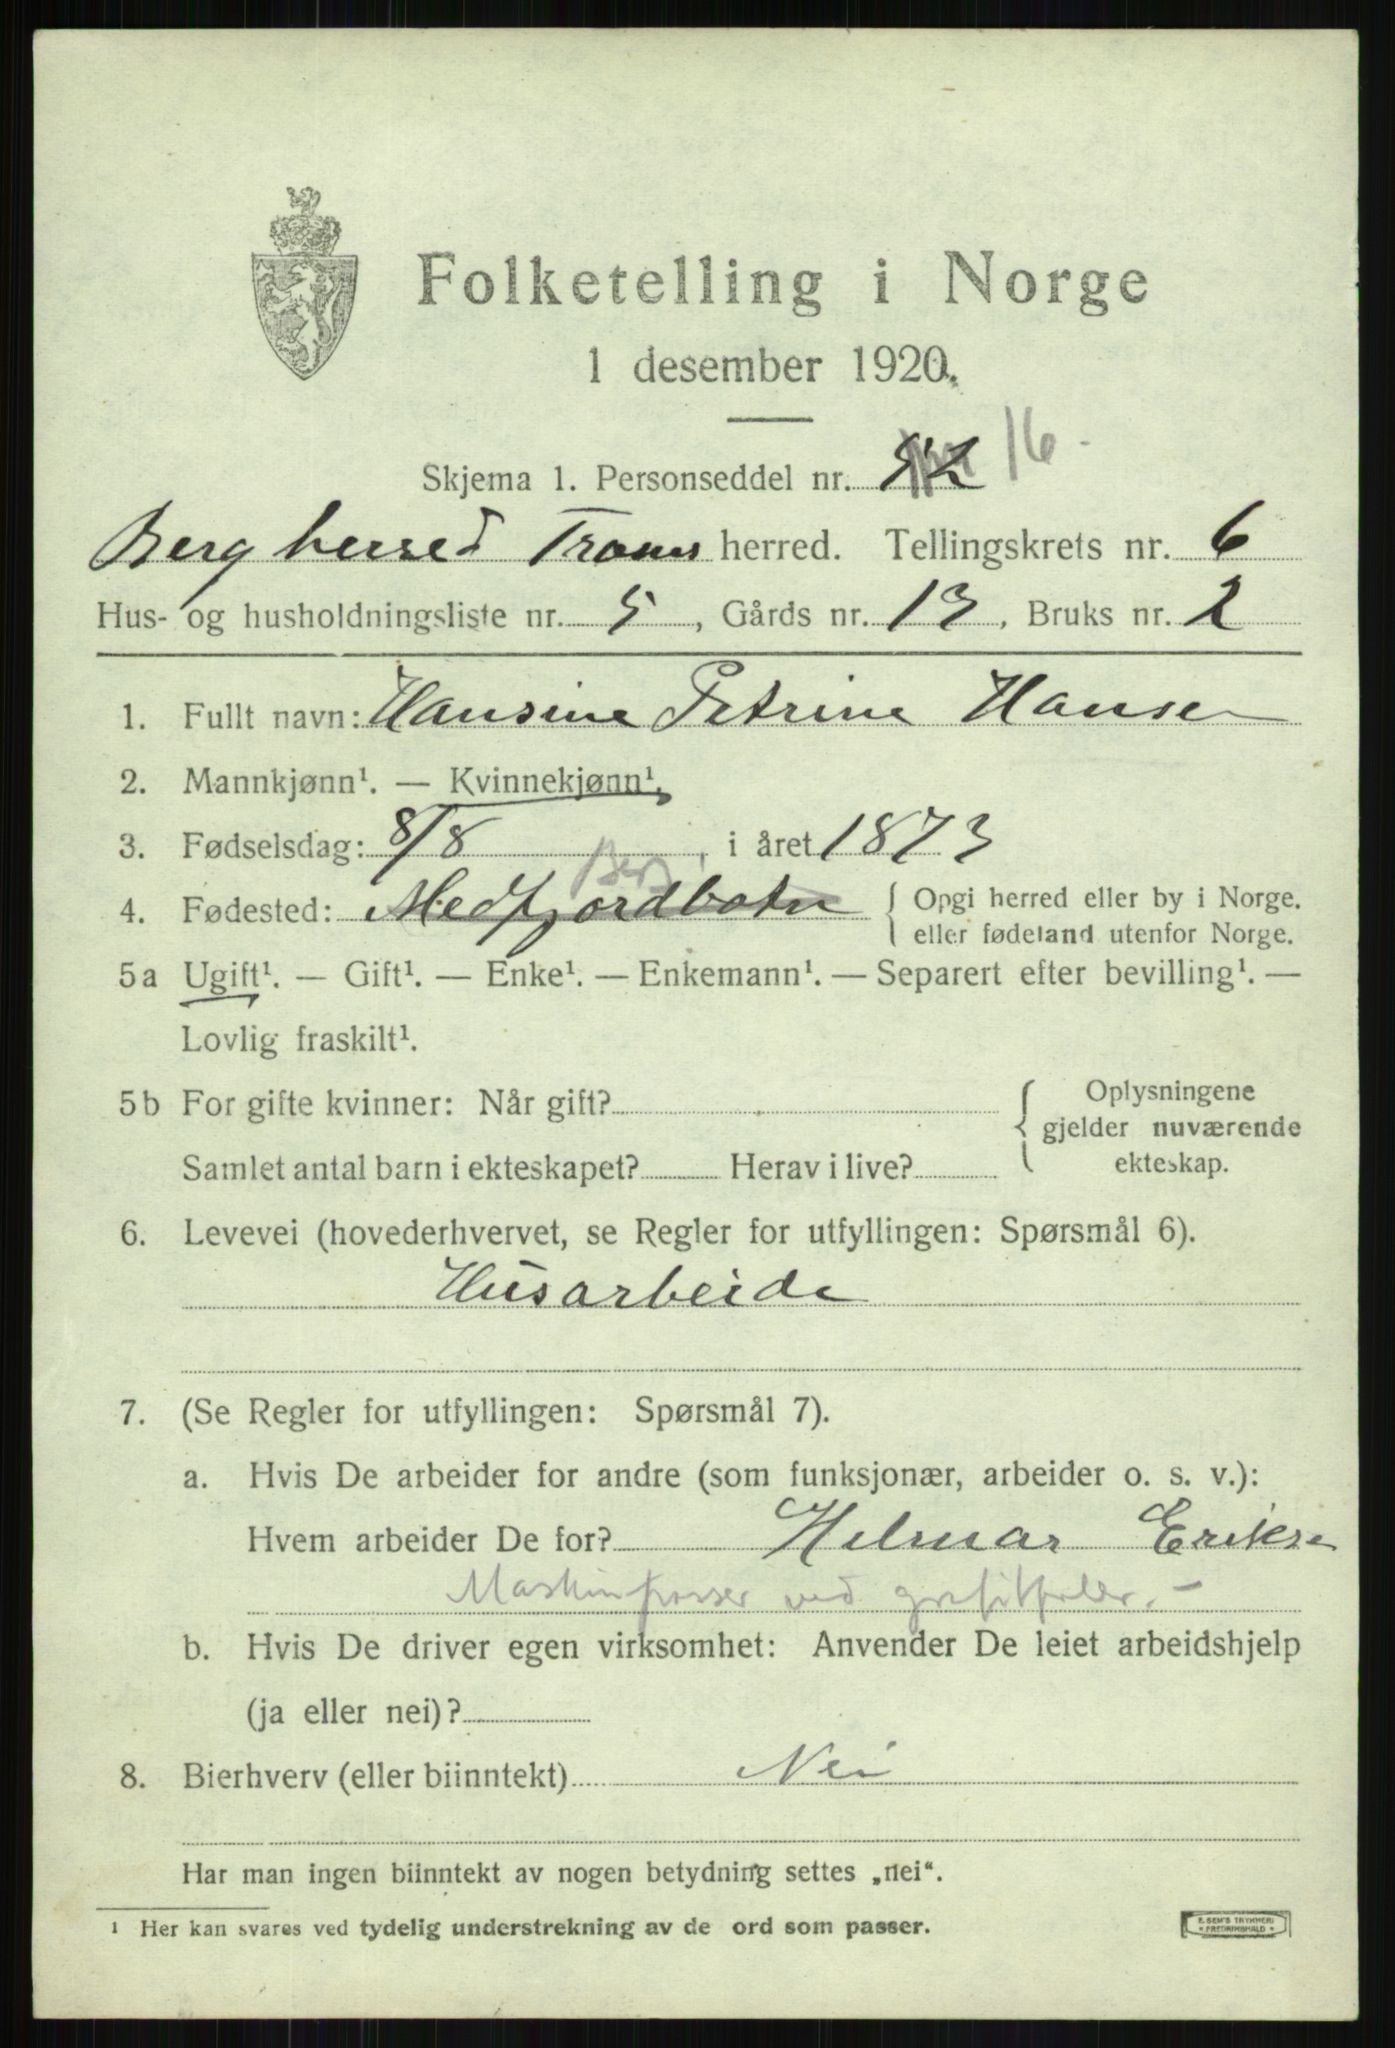 Folketelling i Norge
1 desember 1920.
Skjema 1. Personseddel nr. 16
Berg herred Troms herred. Tellingskrets nr. 6
Hus- og husholdningsliste nr. 5, Gårds nr. 13, Bruks nr. 2
1. Fullt navn: Hansine Petrine Hansen
2. Mannkjønn¹. — Kvinnekjønn¹.
3. Fødselsdag: 8/8, i året 1873
Berg
4. Fødested: Medfjordbotn { Opgi herred eller by i Norge.
eller fødeland utenfor Norge.
5a Ugift¹. — Gift¹. — Enke¹. — Enkemann¹. — Separert efter bevilling¹. —
Lovlig fraskilt¹.
5b For gifte kvinner: Når gift? { Oplysningene
gjelder nuværende
Samlet antal barn i ekteskapet? Herav i live? ekteskap.
6. Levevei (hovederhvervet, se Regler for utfyllingen: Spørsmål 6).
Husarbeide
7. (Se Regler for utfyllingen: Spørsmål 7).
a. Hvis De arbeider for andre (som funksjonær, arbeider o. s. v.):
Hvem arbeider De for? Helmar Eriksen
Maskinpasser ved
b. Hvis De driver egen virksomhet: Anvender De leiet arbeidshjelp
(ja eller nei)?
8. Bierhverv (eller biinntekt) Nei
Har man ingen biinntekt av nogen betydning settes „nei“.
¹ Her kan svares ved tydelig understrekning av de ord som passer.
E. SEM'S TRYKKERI
FREDRIKSHALD